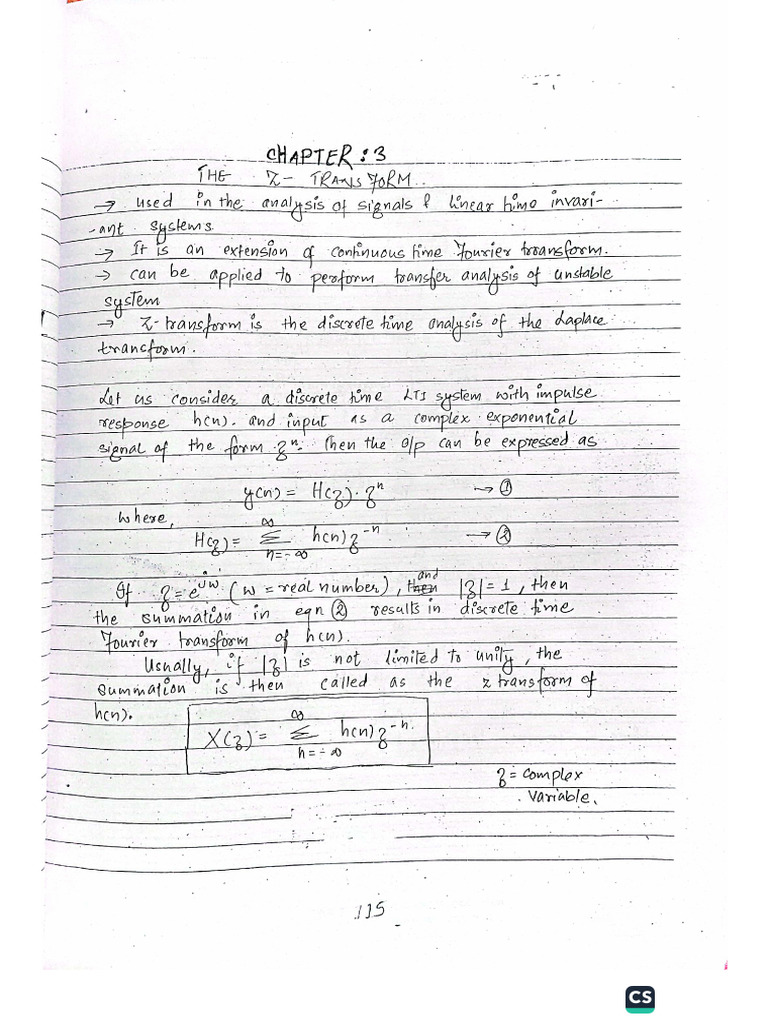 CHAPTER : 3
THE Z- TRANSFORM.
→ used in the analysis of signals & linear time invari-
-ant systems.
→ It is an extension of continuous time Fourier transform.
→ can be applied to perform transfer analysis of unstable
system
→ Z-transform is the discrete time analysis of the Laplace
transform.
Let us consider a discrete time LTI system with impulse
response h(n). and input as a complex exponential
signal of the form zⁿ. Then the o/p can be expressed as
y(n) = H(z)·zⁿ → ①
where,
H(z) = ∞Σn=-∞ h(n) z⁻ⁿ → ②
If z = e^jω (ω = real number), and |z| = 1, then
the summation in eqn ② results in discrete time
Fourier transform of h(n).
Usually, if |z| is not limited to unity, the
summation is then called as the z transform of
h(n).
X(z) = ∞Σn=-∞ h(n) z⁻ⁿ.
z = complex
variable.
115
CS